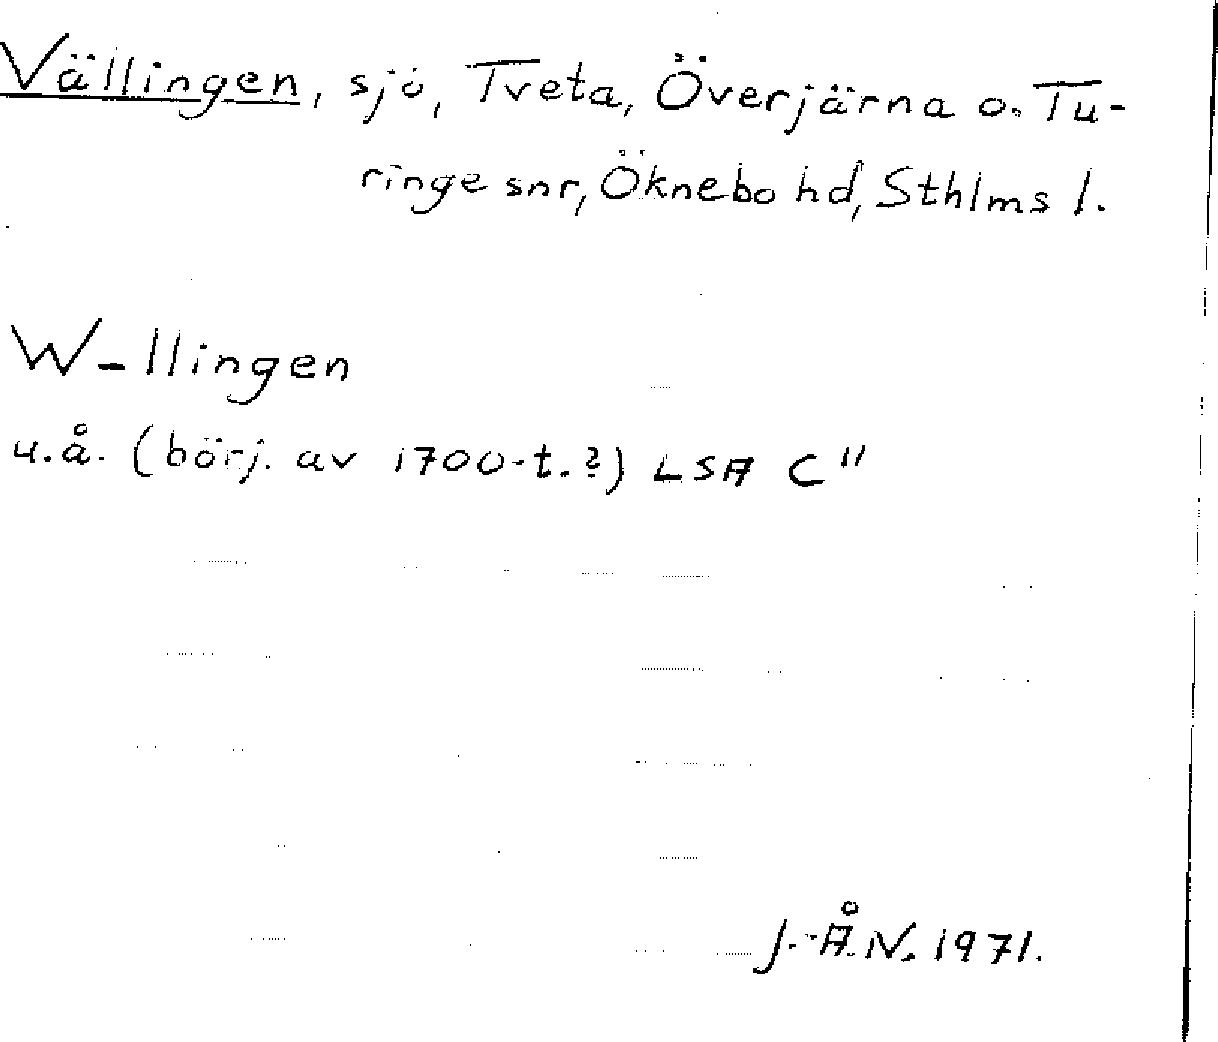 Vällingen, sjö, Tveta, Överjärna o. Tu-
ringe snr, Öknebo hd, Sthlms l.
W-llingen
u.å. (börj. av 1700-t.?) LSA C"
J.-Å.N. 1971.